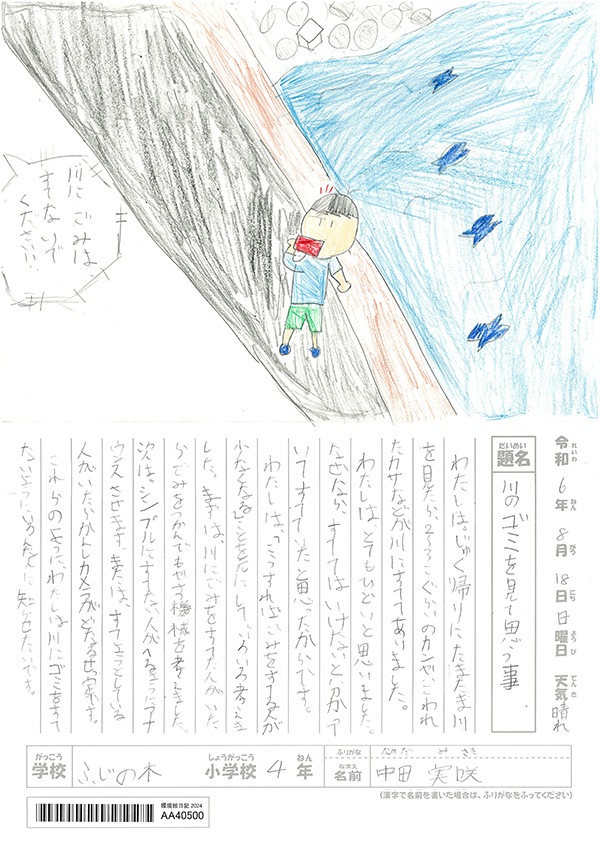 川にごみは
すてないで
ください!!
令和6年8月18日日曜日 天気晴れ
れいわ ねん がつ にち にち ようび てんき
だいめい
題名
川のゴミを見て思う事
わたしは、じゅく帰りにたまたま川
を見たら2〜3こぐらいのカンやこわれ
たカサなどが川にすててありました。
わたしはとてもひどいと思いました。
なぜなら、すてはいけないと分かって
いてすてていたと思ったからです。
わたしは、どうすればごみをすてる人が
少なくなることを元にしていろいろ考えま
した。まずは、川にごみをすてた人がいた
らごみをつかんでもやす機械を考えました。
次は、シンプルにすてない人がへるようアナ
ウンスさせます。または、すてようとしている
人がいたらかんしカメラがどなるせっ定です。
これらのように、わたしは川にゴミをすて
ないようにいろんな人に知らせたいです。
がっこう しょうがっこう ねん
学校 ふじの木 小学校 4年
ふりがな なかだ みさき
なまえ
名前 中田 実咲
(漢字で名前を書いた場合は、ふりがなをふってください)
環境絵日記 2024
AA40500